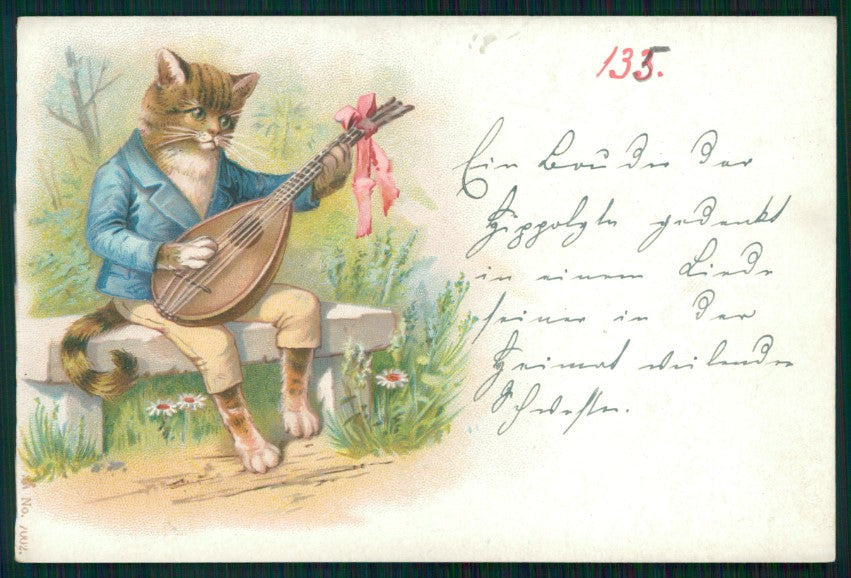 135.
Ein Bruder der
Hippolyte gedenkt
in einem Liede
seiner in der
Heimat weilenden
Schwester.
No. 7002.